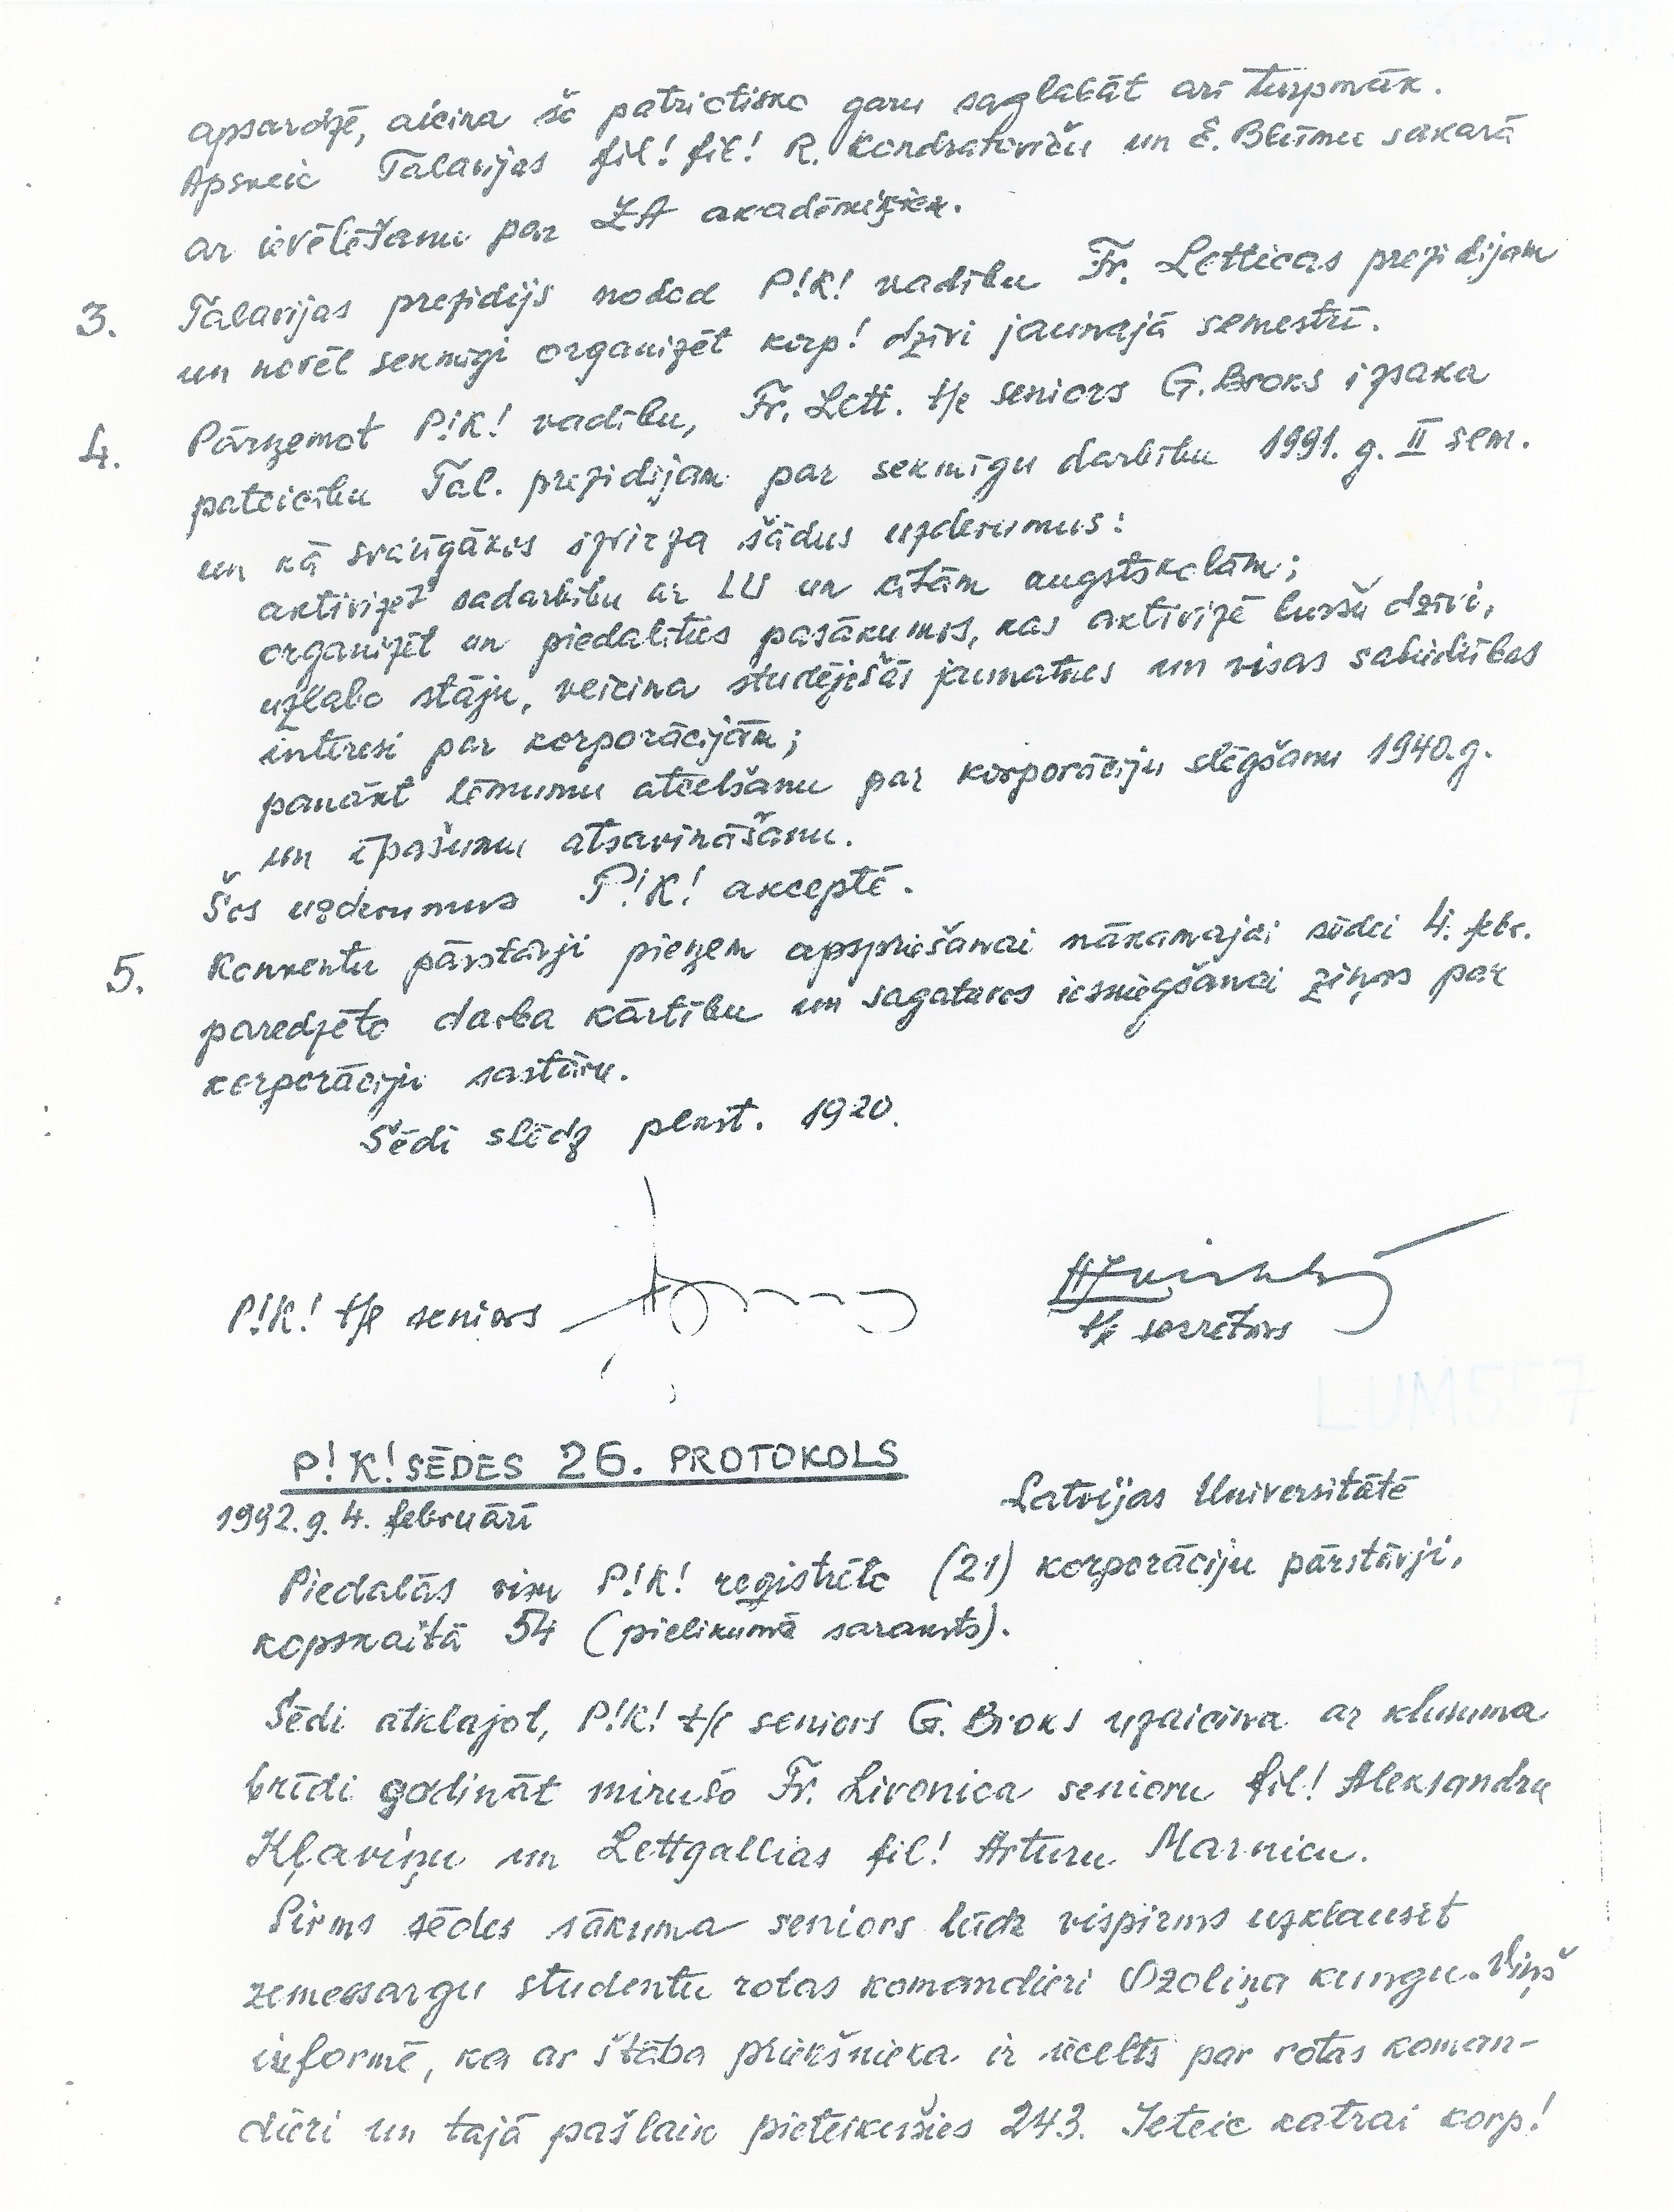 apsardzē, aicina šo patriotisko garu saglabāt arī turpmāk.
Apsveic Talavijas fil! fil! R. Kondratoviču un E. Blūmu sakarā
ar ievēlēšanu par ZA akadēmiķiem.
3. Talavijas prezidijs nodod P!K! vadību Fr. Letticas prezidijam
un novēl sekmīgi organizēt korp! dzīvi jaunajā semestrī.
4. Pārņemot P!K! vadību, Fr. Lett. t/p seniors G. Broks izsaka
pateicību Tal. prezidijam par sekmīgu darbību 1991. g. II sem.
un kā svarīgākos izvirza šādus uzdevumus:
aktivizēt sadarbību ar LU un citām augstskolām;
organizēt un piedalīties pasākumos, kas aktivizē buršu dzīvi,
uzlabo stāju, veicina studējošās jaunatnes un visas sabiedrības
interesi par korporācijām;
panākt lēmumu atcelšanu par korporāciju slēgšanu 1940.g.
un īpašumu atsavināšanu.
Šos uzdevumus P!K! akceptē.
5. Konventu pārstāvji pieņem apspriešanai nākamajai sēdei 4. febr.
paredzēto darba kārtību un sagatavos iesniegšanai ziņas par
korporāciju sastāvu.
Sēdi slēdz plkst. 1920.
P!K! t/p seniors
t/p sekretārs
LUM557
P!K! SĒDES 26. PROTOKOLS
1992. g. 4. februārī Latvijas Universitātē
Piedalās visu P!K! reģistrēto (21) korporāciju pārstāvji,
kopskaitā 54 (pielikumā saraksts).
Sēdi atklājot, P!K! t/p seniors G. Broks uzaicina ar klusuma
brīdi godināt mirušo Fr. Livonica senioru fil! Aleksandru
Kļaviņu un Lettgallias fil! Arturu Marnicu.
Pirms sēdes sākuma seniors lūdz vispirms uzklausīt
zemessargu studentu rotas komandieri Ozoliņa kungu. Viņš
informē, ka ar štāba priekšnieka ir iecelts par rotas koman-
dieri un tajā pašlaik pieteikušies 243. Ieteic katrai korp!